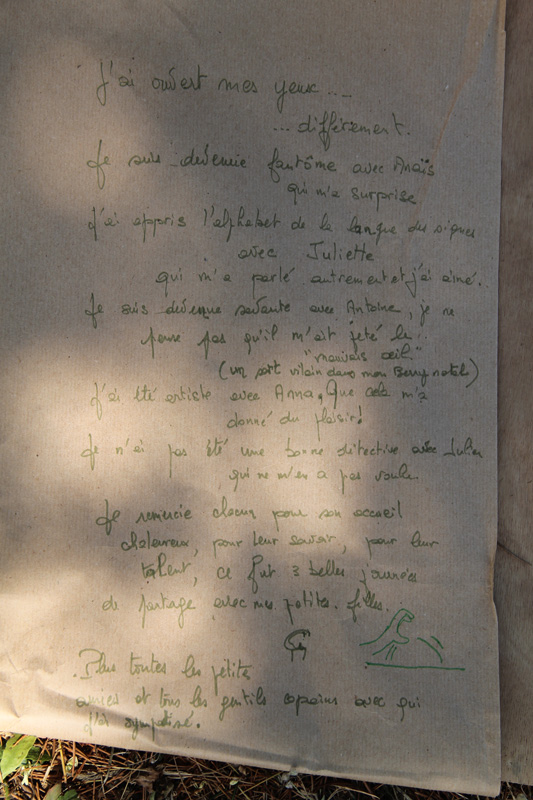 J'ai ouvert mes yeux...
... différement.
Je suis devenue fantôme avec Anaïs
qui m'a surprise
J'ai appris l'alphabet de la langue des signes
avec Juliette
qui m'a parlé autrement et j'ai aimé.
Je suis devenue savante avec Antoine, je ne
pense pas qu'il m'ait jeté le..
"mauvais œil"
(un sort vilain dans mon Berry natal)
J'ai été artiste avec Anna, Que cela m'a
donné du plaisir!
Je n'ai pas été une bonne détective avec Julien
qui ne m'en a pas voulu.
Je remercie chacun pour son accueil
chaleureux, pour leur savoir, pour leur
talent, ce fut 3 belles journées
de partage avec mes petites filles.
. Plus toutes les petites
amies et tous les gentils copains avec qui
j'ai sympatisé.